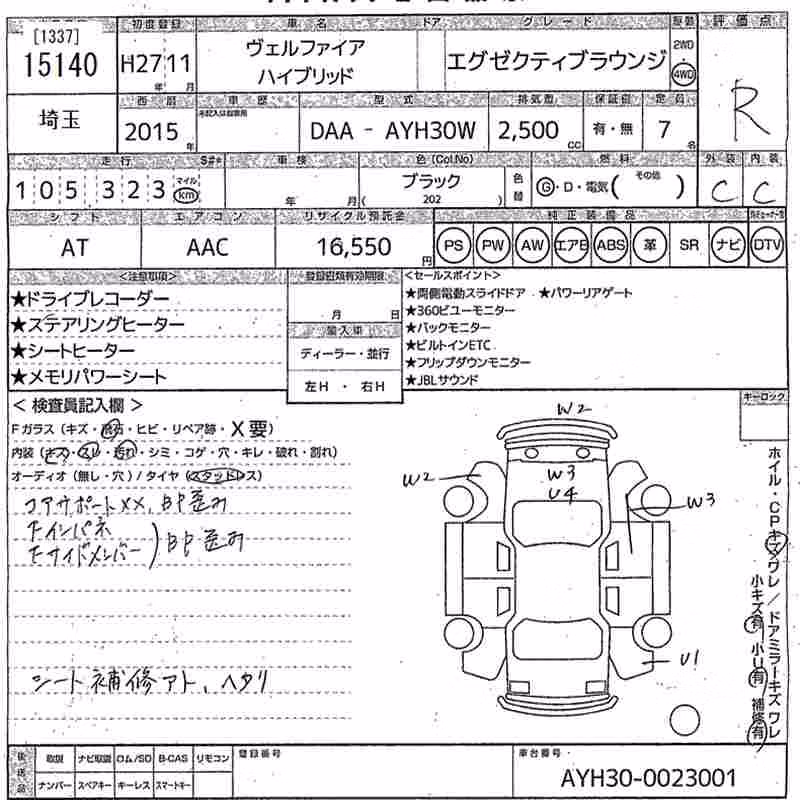 [1337]
15140
埼玉
初度登録
H27 11
年 月
車名 ドア
ヴェルファイア
ハイブリッド
グレード
エグゼクティブラウンジ
駆動
2WD
4WD
評価点
R
西暦
2015
年
車歴
未記入は自家用
型式
DAA - AYH30W
排気量
2,500
CC
保証書
有・無
定員
7
名
走行 S#*
105323
マイル
km
車検
年 月
色 (Col.No)
ブラック
( 202 )
色替
燃料
G・D・電気( その他 )
外装
C
内装
C
シフト
AT
エアコン
AAC
リサイクル預託金
16,550
円
純正装備品
PS PW AW エアB ABS 革 SR ナビ DTV
<注意事項>
★ドライブレコーダー
★ステアリングヒーター
★シートヒーター
★メモリパワーシート
登録書類有効期限
月 日
輸入車
ディーラー・並行
左H ・ 右H
<セールスポイント>
★両側電動スライドドア ★パワーリアゲート
★360ビューモニター
★バックモニター
★ビルトインETC
★フリップダウンモニター
★JBLサウンド
< 検査員記入欄 >
Fガラス (キズ・飛石・ヒビ・リペア跡・X要)
内装 (キズ・スレ・汚れ・シミ・コゲ・穴・キレ・破れ・割れ)
オーディオ (無し・穴) / タイヤ (スタッドレス)
コアサポートXX、BP歪み
Fインパネ
FサイドメンバーBP歪み
シート補修アト、ヘタリ
キーロック
W2
W2
W3
U4
W3
U1
ホイル・CPキズワレ/ドアミラーキズワレ
小キズ有 小U有 補修有
後送品
取説 ナビ取説 ロム/SD B-CAS リモコン
ナンバー スペアキー キーレス スマートキー
登録番号
車台番号
AYH30-0023001